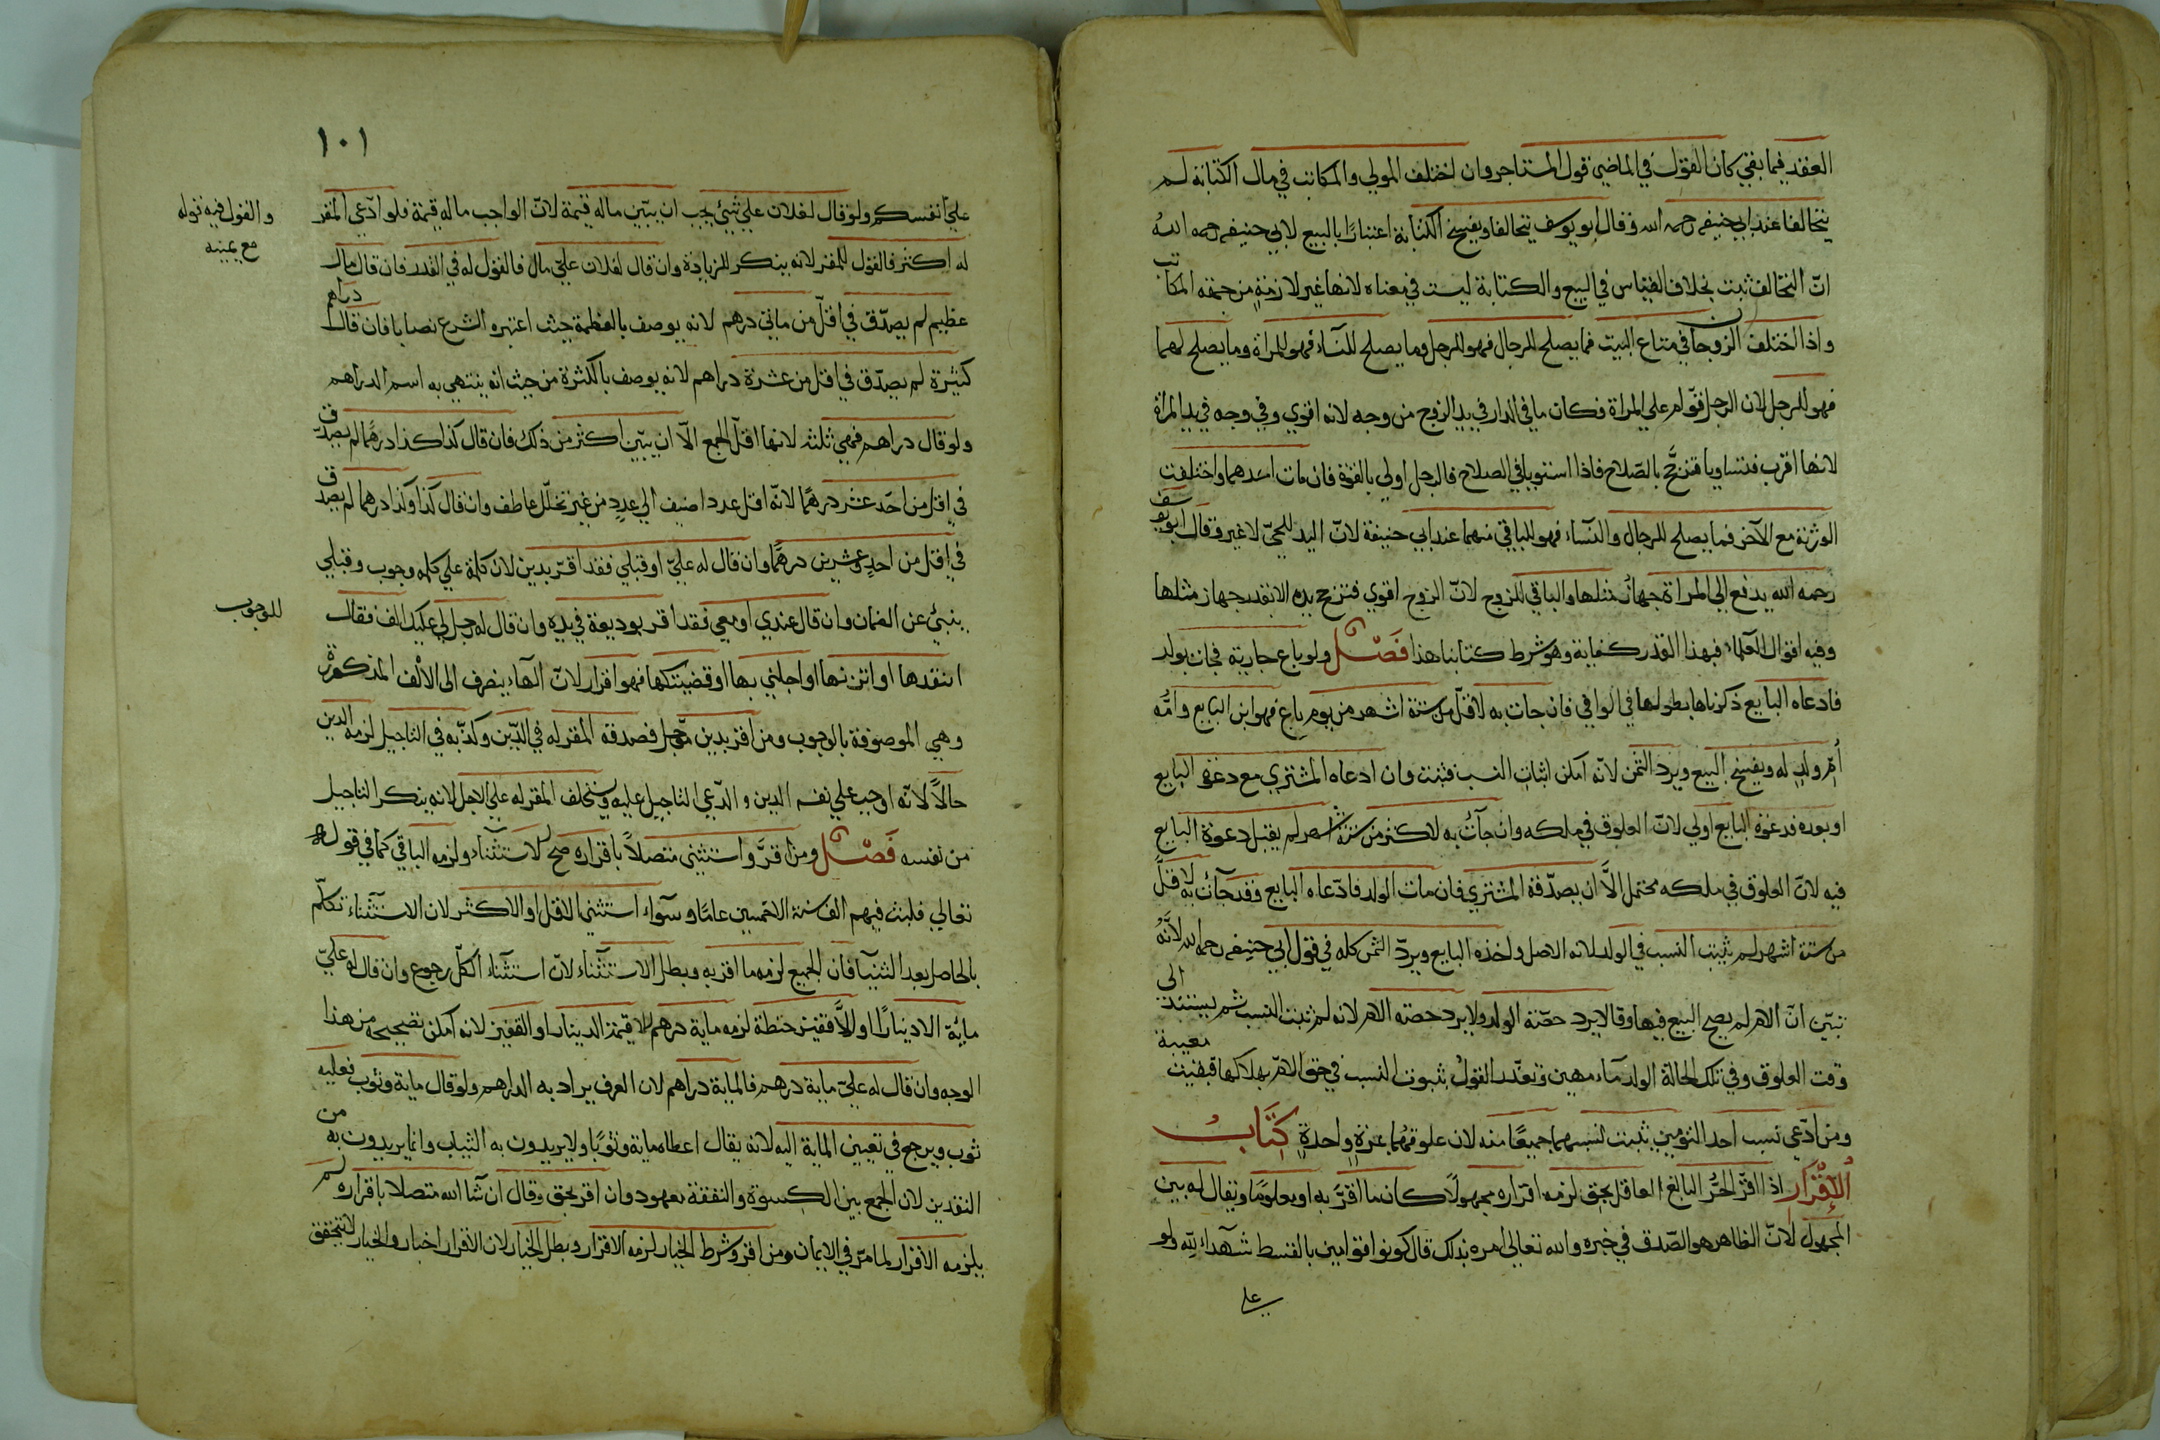 العقد فيما بقي كان القول في الماضي قول المستاجر وان اختلف المولي والمكاتب في مال الكتابة لم
يتحالفا عند ابي حنيفه رحمه الله وقال ابو يوسف يتحالفا ويفسخ الكتابة اعتبارًا بالبيع لابي حنيفه رحمه الله
انّ التخالف ثبت بخلاف القياس في البيع والكتابة ليست في معناه لانها غير لازمة من جهة المكاتب
واذا اختلف الزوجان في متاع البيت فما يصلح للرجال فهو للرجل وما يصلح للنّساء فهو للمراة وما يصلح لهما
فهو للرجل لان الرجل قوّام علي المراة فكان ما في الدار في يد الزوج من وجه لانه اقوي وفي وجه في يد المراة
لانها اقرب فتساويا فترجّح بالصّلاح فاذا استويا في الصلاح فالرجل اولي بالقوة فان مات احدهما واختلفت
الورثة مع الآخر فما يصلح للرجال والنّساء فهو للباقي منهما عند ابي حنيفة لانّ اليد للحيّ لا غير وقال ابو يوسف
رحمه الله يدفع الي المراة جهاز مثلها والباقي للزوج لانّ الزوج اقوي فترجح يده الا بقدر جهاز مثلها
وفيه اقوال العلماء فبهذا القدر كفاية وهو شرط كتابنا هذا فَصْل ولو باع جارية فجات بولد
فادعاه البايع ذكرناها بطولها في الوافي فان جات به لاقلّ من ستة اشهر من يوم باع فهو ابن البايع وامُّه
اُمّ ولدٍ له ويفسخ البيع ويرد الثمن لانّه امكن اثبات النسب فثبت وان ادعاه المشتري مع دعوة البايع
او بعده فدعوة البايع اولي لانّ العلوق في ملكه وان جآت به لاكثر من ستة اشهر لم يقبل دعوة البايع
فيه لانّ العلوق في ملكه محتمل الاَّ ان يصدّقه المشتري فان مات الولد فادّعاه البايع وقد جآت به لاقلّ
من ستة اشهر لم يثبت النسب في الولد لانه الاصل ولخذه البايع ويردّ الثمن كله في قول ابي حنيفه رحمه الله لانّهُ
تبيّن انّ الام لم يصح البيع فيها وقالا يرد حصّته الولد ولا يرد حصّته الام لانه لم يثبت النسب ثم يستند الى
وقت العلوق وفي تلك الحالة الولد مآء مهين وتعذّر القول بثبوت النسب في حق الام بهلاكها فبقيت معيبة
ومن ادّعي نسب احد التومين يثبت نسبهما جميعًا منه لان علوقهُما عن مرةٍ واحدةٍ كِتَابُ
الاِقْرَارِ اذا اقرّ الحُرُّ البالغ العاقل بحق لزمه اقراره مجهولًا كان ما اقرَّ به او معلومًا ويقال له بين
المجهول لانّ الظاهر هو الصّدق في خبره والله تعالي امره بذلك قال كونوا قوامين بالقسط شهداء لله ولو
علي
١٠١
علي انفسكم ولو قال لفلان علي شيئ يجب ان يبيّن ماله قيمة لانّ الواجب ما له قيمة فلو ادّعي المقر
والقول فيه قوله
مع يمينه
له اكثر فالقول للمقر لانه ينكر للزيادة وان قال لفلان عليّ مال فالقول له في القدر فان قال مال
عظيم لم يصدّق في اقلّ من ماتي درهم لانه يوصف بالعظمة حيث اعتبره الشرع نصابا فان قال دراهم
كثيرة لم يصدّق في اقل من عشرة دراهم لانه يوصف بالكثرة من حيث انه ينتهي به اسم الدراهم
ولو قال دراهم فهي ثلثة لانها اقلّ الجمع الاّ ان يبيّن اكثر من ذلك فان قال كذا كذا درهمًا لم يصدّق
في اقل من احَد عشر درهمًا لانّه اقل عدد اضيف الي عددٍ من غير تخلّل عاطف وان قال كذا وكذا درهما لم يصدق
في اقل من احدٍ وعشرين درهمًا وان قال له عليّ او قبلي فقد اقرّ بدين لان كلمة علي كلمه وجوب وقبلي
للوجوب
ينبئ عن الضمان وان قال عندي او معي فقد اقر بوديعة في يده وان قال له رجل لي عليك الف فقال
انتقدها او اتزنها او اجلني بها او قضيتكها فهو اقرار لانّ الهآء ينصرف الى الالف المذكورة
وهي الموصوفة بالوجوب ومن اقر بدين مؤجل فصدقه المقر له في الدّين وكذّبه في التاجيل لزمه الدين
حالًّا لانّه اوجب علي نفسه الدين والدّعي التاجيل عليه ويستحلف المقر له علي الاجل لانه ينكر التاجيل
من نفسه فَصْل ومن اقرَّ واستثنى متصلاً باقراره صح الاستثناء ولزمه الباقي كما في قوله
تعالي فلبث فيهم الف سنة الا خمسين عامًا وسوآء استثني الاقل او الاكثر لان الاستثناء تكلّم
بالحاصل بعد الثنيا فان الجميع لزمه ما اقر به وبطل الاستثناء لانّ استثناء الكلّ رجوع وان قال له عليّ
مائة الا دينارًا او الاَّ قفيز حنطة لزمه ماية درهم الا قيمة الدينار او القفيز لانه امكن تصحيحه من هذا
الوجه وان قال له عليّ ماية درهم فالماية دراهم لان العرف يراد به الدراهم ولو قال ماية وثوب فعليه
ثوب ويرجع في تعيين الماية اليه لانه يقال اعطاه ماية وثوبًا ولا يريدون به الثياب وانما يريدون به من
النقدين لان الجمع بين الكسوة والنفقة معهود وان اقر بحق وقال ان شآ الله متصلا باقراره لم
يلزمه الاقرار لما مرّ في الايمان ومن اقر وشرط الخيار لزمه الاقرار وبطل الخيار لان الاقرار اخبار والخيار لا يتحقق